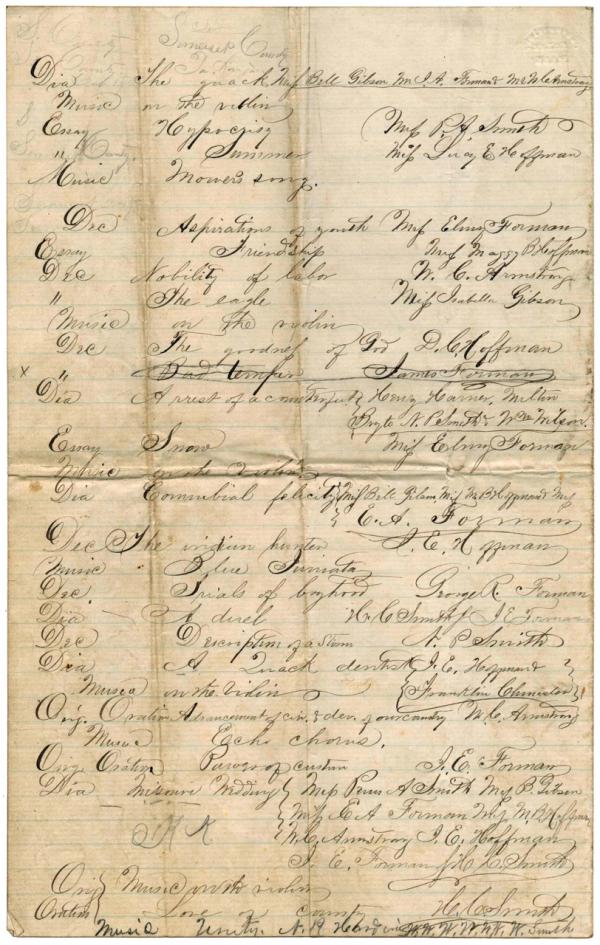 Somerset County
Dia The quack Miss Bell Gibson Mr J. A. Forman & Mr W C Armstrong
Music on the violin
Essay Hypocrisy Miss P. A. Smith
" Summer Miss Lucy E Hoffman
Music Mowers song.
Dec Aspirations of youth Miss Elmy Forman
Essay Friendship Miss Maggy B Hoffman
Dec Nobility of labor W. C. Armstrong
" The eagle Miss Isabella Gibson
Music on the violin
Dec The goodness of God D. C. Hoffman
x " Bad temper James Forman
Dia Arrest of a Henry Harner, Milton
N. P. Smith & Wm Wilson.
Essay Snow Miss Elmy Forman
Music on the violin
Dia Connubial felicity Miss Bell Gibson, Miss M B Hoffman & Miss
E. A. Forman
Dec The indian hunter J. E. Hoffman
Music Blue Juniata
Dec. Trials of boyhood George R. Forman
Dia A duel H. C. Smith & J E Forman
Dec Description of a Storm N. P. Smith
Dia A Quack dentist J. E. Hoffman &
Musca on the violin Franklin
Orig. Oration Advancement of civ. & dev. of our country W. C. Armstrong
Music Echo chorus.
Orig Oration Power of custom J. E. Forman
Dia Missouri Wedding Miss A Smith Miss B. Gibson
Miss E A Forman Miss M B Hoffman
W. C. Armstrong J. E. Hoffman
J. E. Forman & H. C. Smith
Orig Music on the violin
Oration Love of country H. C. Smith
Music Unity. N. P. W. W. W. W. W. W. Smith